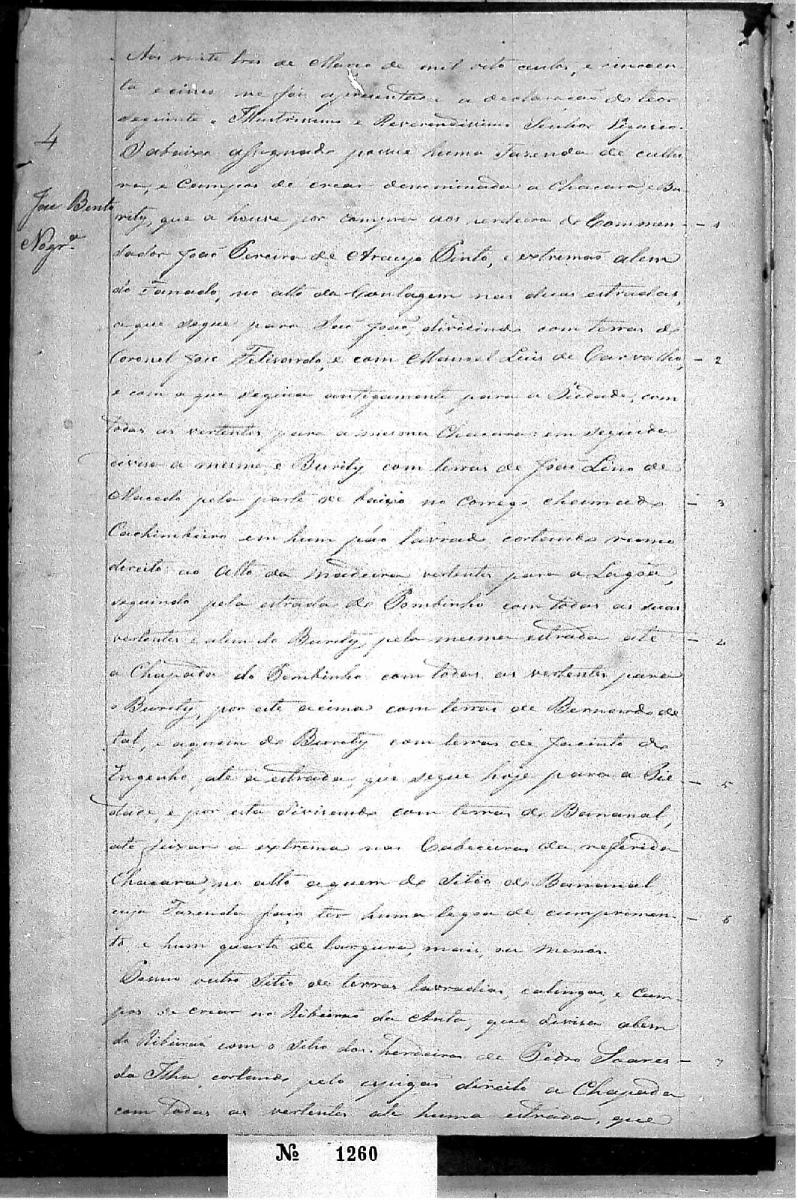 Aos vinte tres de Março de mil oito centos, e cincoen
ta e cinco me foi apresentado a declaração do teor
seguinte = Illustrissimo e Reverendissimo Senhor Vigario.
4
O abaixo assignado possue huma Fazenda de cultu
ra, e Campos de crear denominada a Chacara, e Bu
Joze Bento
rity, que a houve por compra aos erdeiros do Commen- - 1
Nogr.ª
dador João Pereira de Araujo Pinto, e extremão alem
do Fanado, no alto da Contagem nas duas estradas,
a que segue para São João, dividindo com terras do
Coronel Joze Felizardo, e com Manoel Luis de Carvalho, - 2
e com a que seguia antigamente para a Piedade, com
todas as vertentes para a mesma Chacara: em seguida
divisa a mesma e Burity com terras de João Lino de
Macedo pela parte de baixo no Corrego chamado - 3
Cachimbeiro em hum páo lavrado cortando rumo
direito ao Alto da Madeira vertentes para a Lagôa,
seguindo pela estrada do Pombinho com todas as suas
vertentes e alem do Burity, pela mesma estrada até - 4
a Chapada do Pombinho com todas as vertentes para
o Burity, por este acima com terras de Bernardo de
tal, e aquem do Burity com terras de Jacinto do
Engenho, até a estrada, que segue hoje para a Pie - 5
dade, e por esta divisando com terras do Bananal,
até feixar a extrema nas Cabeceiras da referida
Chacara, no alto aquem do Sitio do Bananal
cuja Fazenda faço ter huma legoa de comprimen- - 6
to e hum quarto de largura, mais, ou menos.
Possuo outro Sitio de terras lavradias, catingas, e Cam-
pos de crear no Ribeirão da Anta, que divisa alem
do Ribeirão com o Sitio dos herdeiros de Pedro Soares - 7
da Ilha, cortando pelo espigão direito a Chapada
com todas as vertentes até huma estrada, que
Nº 1260